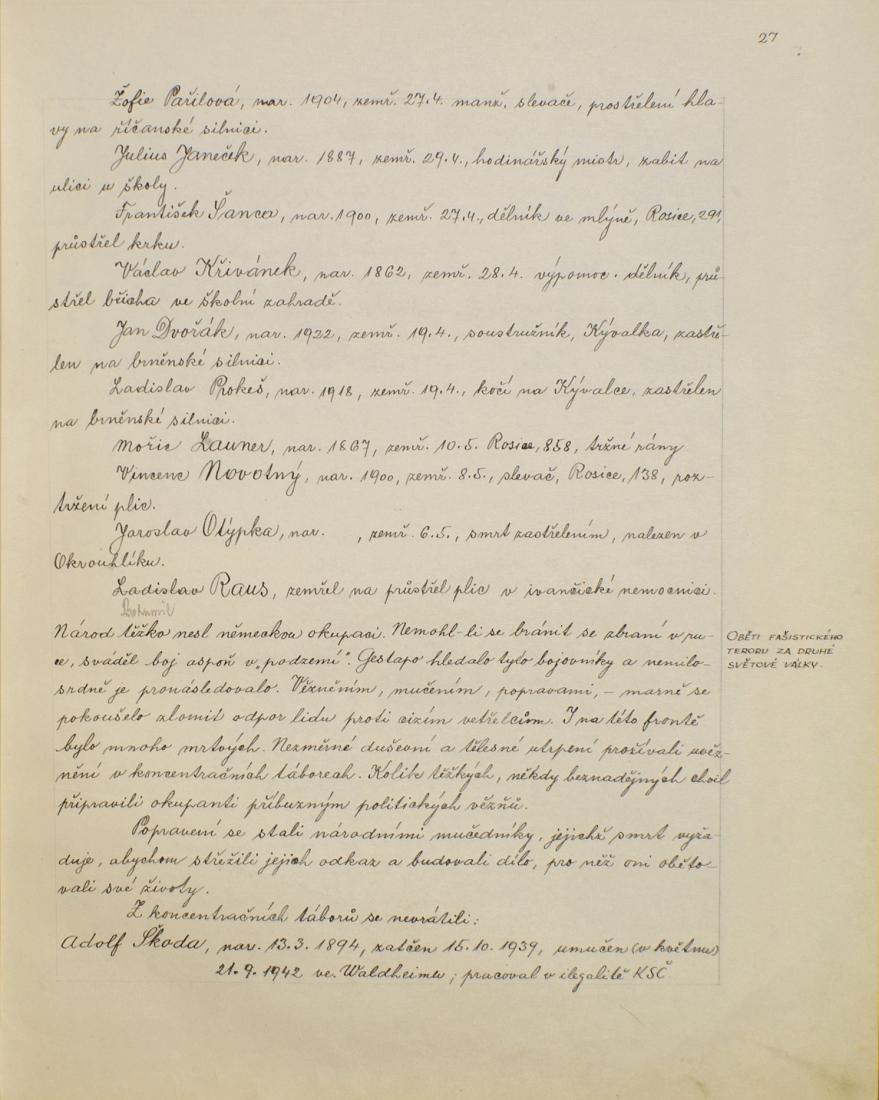 27
Žofie Pařilová, nar. 1904, zemř. 27.4. manž. slevače, prostřelení hla-
vy na říčanské silnici.
Julius Janeček, nar. 1887, zemř. 29.4., hodinářský mistr, zabit na
ulici u školy.
František Šanca, nar. 1900, zemř. 27.4., dělník ve mlýně, Rosice, 291,
průstřel krku.
Václav Křivánek, nar. 1862, zemř. 28.4. výpomoc. dělník, prů-
střel břicha ve školní zahradě.
Jan Dvořák, nar. 1922, zemř. 19.4., soustružník, Kývalka, zastře-
len na brněnské silnici.
Ladislav Prokeš, nar. 1918, zemř. 19.4., kočí na Kývalce, zastřelen
na brněnské silnici.
Mořic Launer, nar. 1867, zemř. 10.5. Rosice, 858, tržné rány
Vincenc Novotný, nar. 1900, zemř. 8.5., slevač, Rosice, 138, roz-
tržení plic.
Jaroslav Otýpka, nar. , zemř. 6.5., smrt zastřelením, nalezen v
Okrouhlíku.
Ladislav Raus, zemřel na průstřel plic v ivančické nemocnici.
Bohumil
Národ těžko nesl německou okupaci. Nemohl-li se bránit se zbraní v ru-
ce, sváděl boj aspoň v „podzemí". Gestapo hledalo tyto bojovníky a nemilo-
srdně je pronásledovalo. Vězněním, mučením, popravami, – marně se
pokoušelo zlomit odpor lidu proti cizím vetřelcům. I na této frontě
bylo mnoho mrtvých. Nezměrné duševní a tělesné utrpení prožívali uvěz-
nění v koncentračních táborech. Kolik těžkých, někdy beznadějných chvil
připravili okupanti příbuzným politických vězňů.
Popravení se stali národními mučedníky, jejichž smrt vyža-
duje, abychom střežili jejich odkaz a budovali dílo, pro něž oni oběto-
vali své životy.
Z koncentračních táborů se nevrátili:
Adolf Škoda, nar. 13.3. 1894, zatčen 15.10. 1939, umučen (v květnu)
21.9.1942 ve. Waldheimu; pracoval v ilegalitě KSČ
Oběti fašistického
teroru za druhé
světové války.